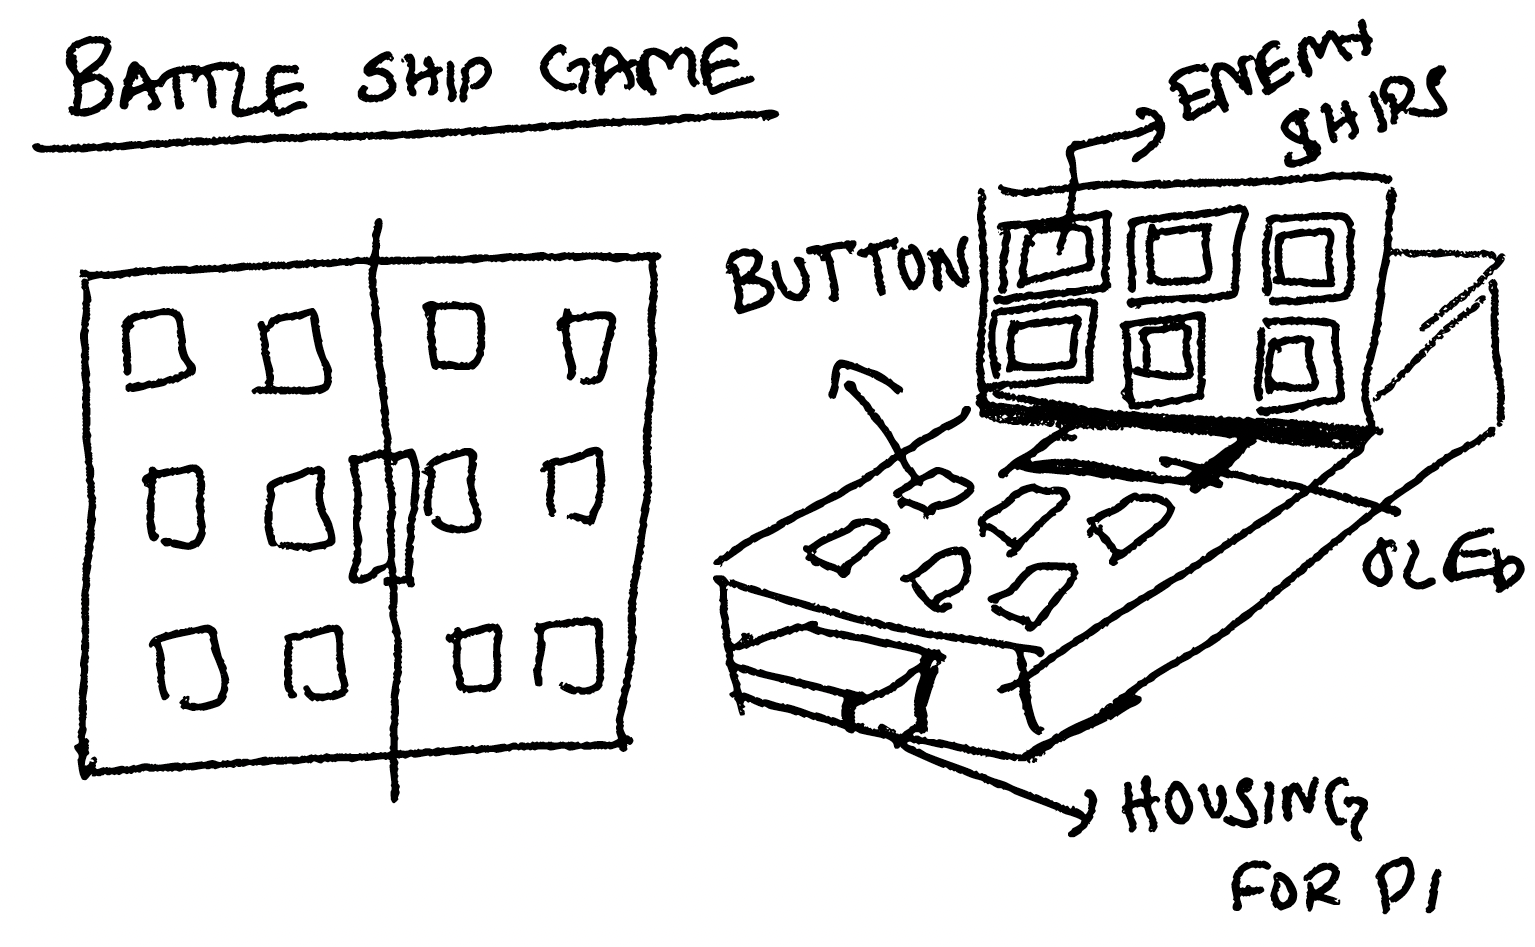 BATTLE SHIP GAME
ENEMY
SHIPS
BUTTON
OLED
HOUSING
FOR PI